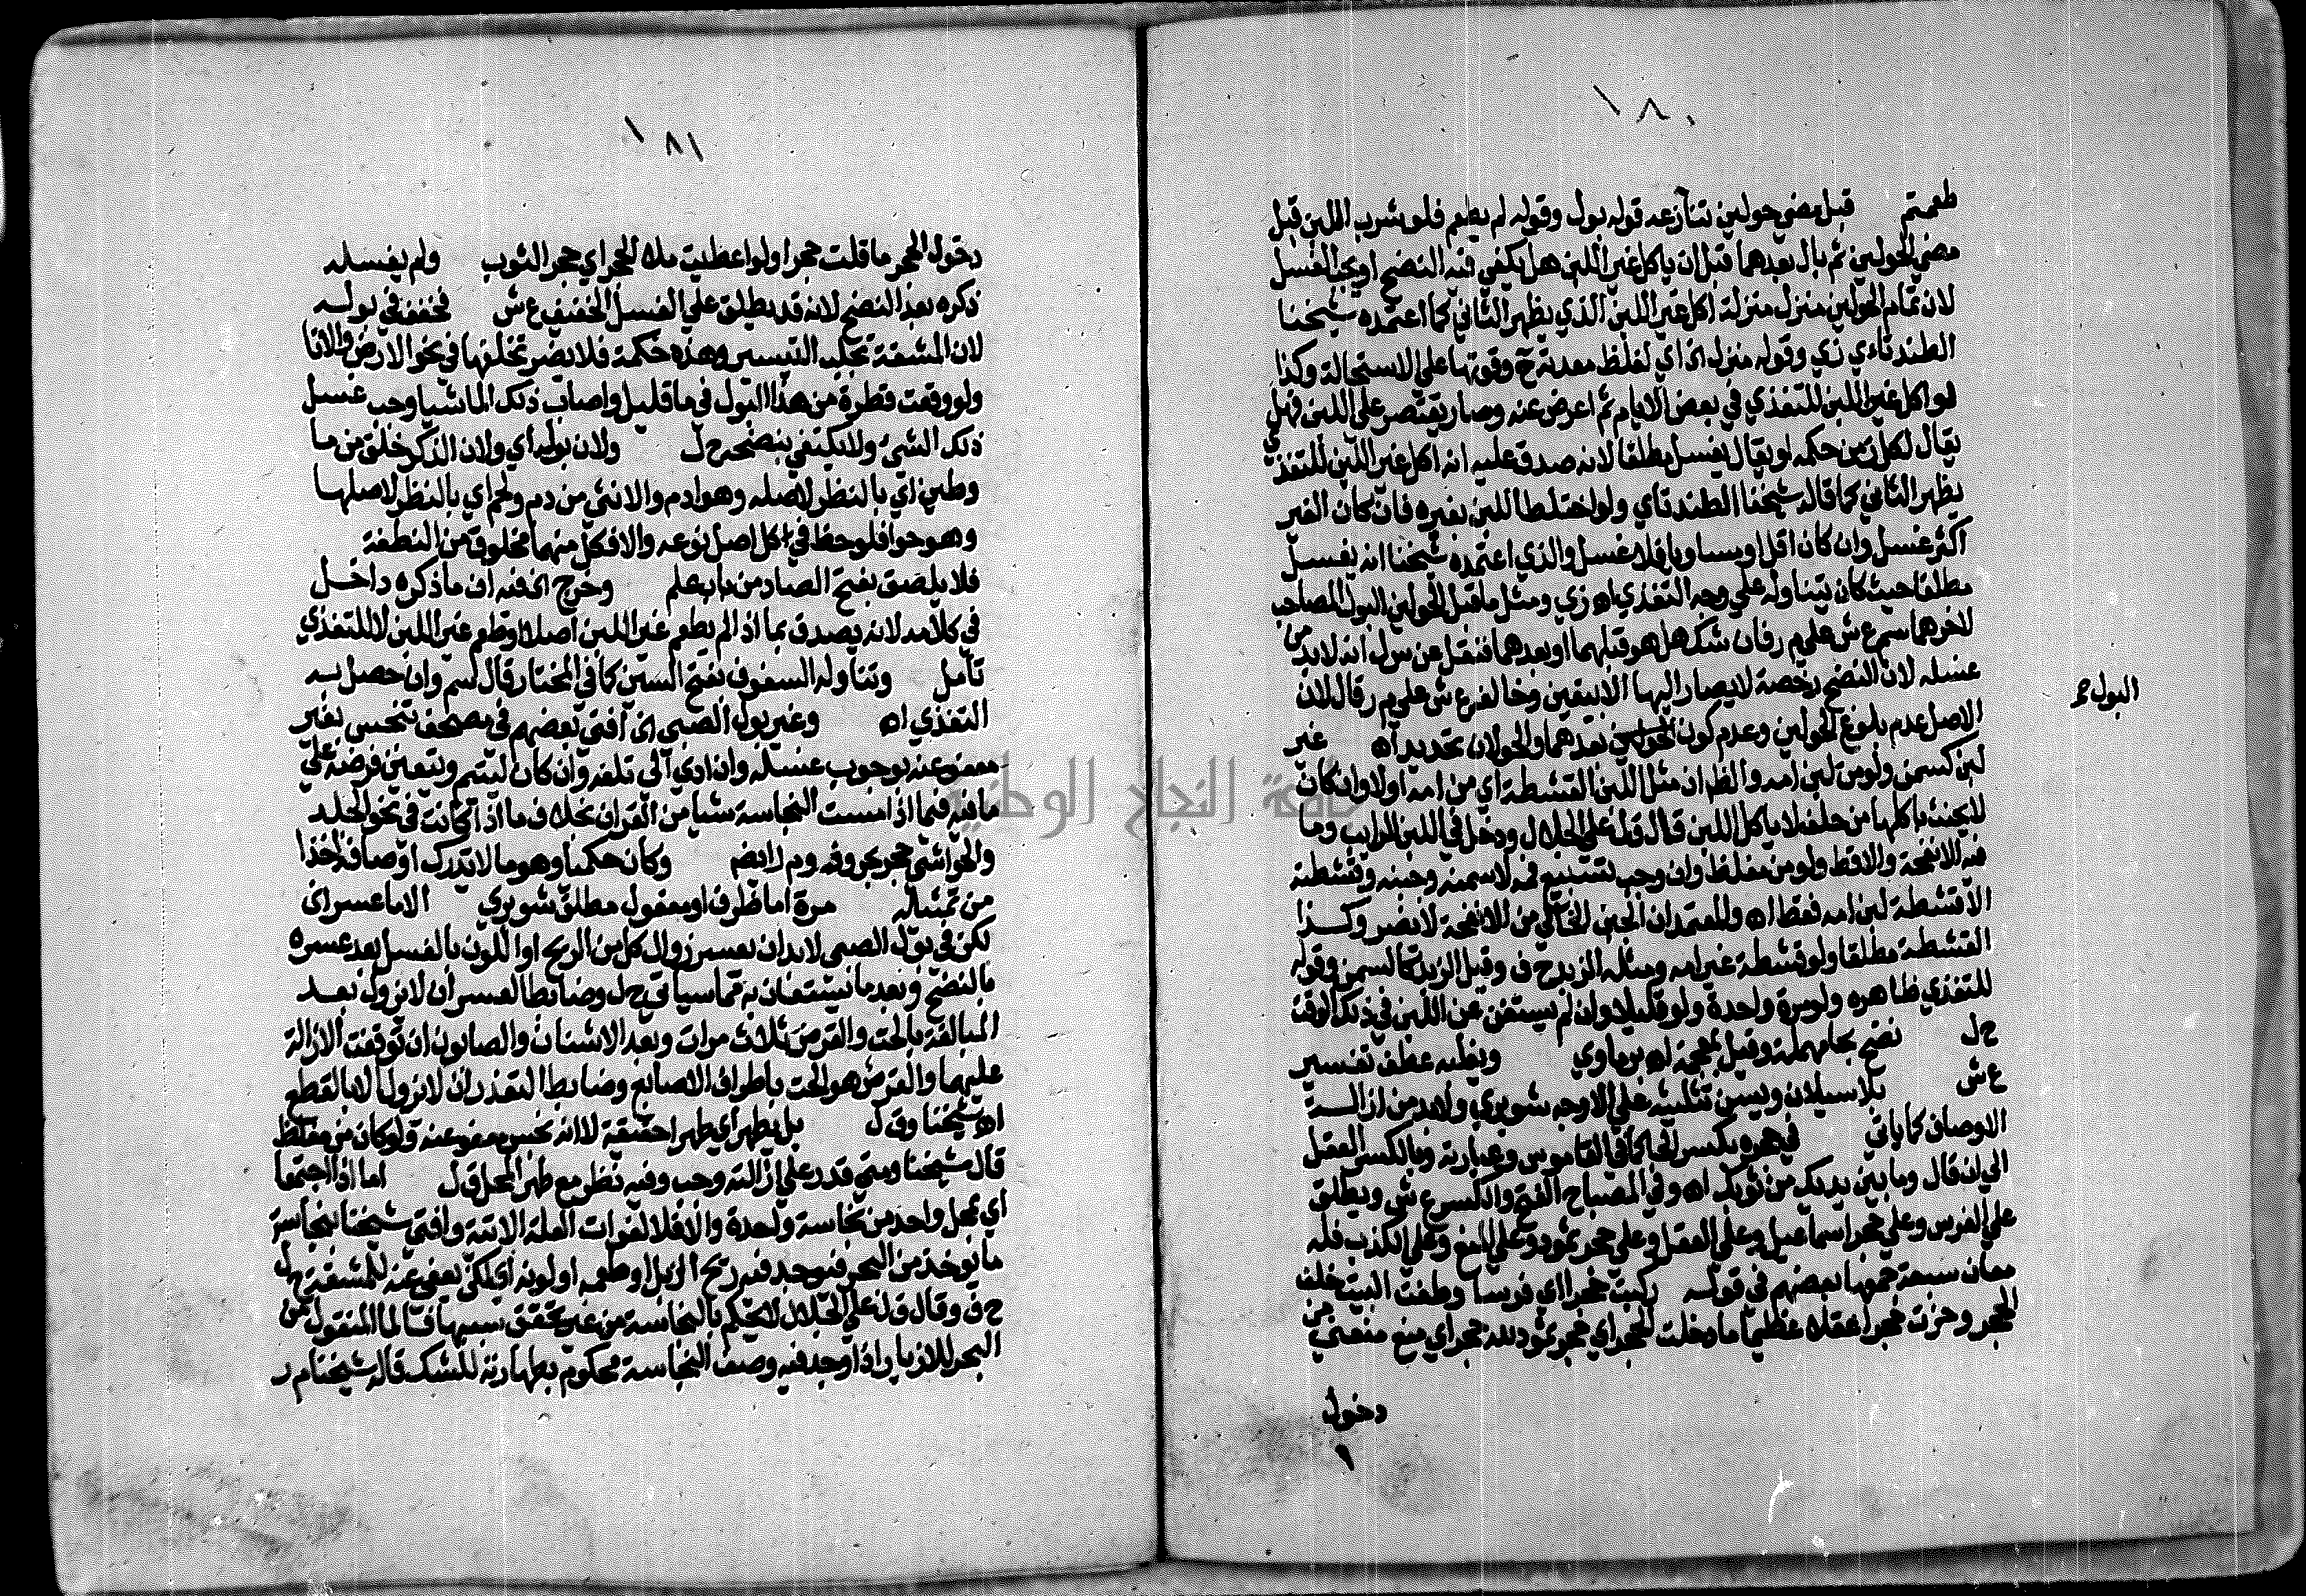 ١٨٠
طعمتم قبل مضي حولين تنازعه قوله بول وقوله لم يطعم فلو شرب اللبن قبل
مضي الحولين ثم بال بعدهما قبل ان ياكل غير اللبن هل يكفي فيه النضح او يجب الغسل
لان تمام الحولين منزل منزلة اكل غير اللبن الذي يظهر الثاني كما اعتمده شيخنا
الطندتاءي زي وقوله منزل الخ اي لغلظ معدته ح وقوتها علي الاستحالة وكذا
لو اكل غير اللبن للتغذي في بعض الايام ثم اعرض عنه وصار يقتصر علي اللبن فهل
يقال لكل زمن حكمه او يقال يغسل مطلقا لانه صدق عليه انه اكل غير اللبن للتغذي
يظهر الثاني كما قاله شيخنا الطندتاي ولو اختلط اللبن بغيره فان كان الغير
اكثر غسل وان كان اقل او مساويا فلا غسل والذي اعتمده شيخنا انه يغسل
مطلقا حيث كان يتناوله علي وجه التغذي اه زي ومثل ما قبل الحولين البول المصاحب
لاخرهما سم ع ش علي م ر فان شك هل هو قبلهما او بعدهما فنقل عن س ل انه لابد من
غسله لان النضح رخصة لا يصار اليها الا بيقين وخالفه ع ش علي م ر قال لان
البول صح
الاصل عدم بلوغ الحولين وعدم كون الحولين بعدهما والحولان تحديد اه غير
لبن كسمن ولو من لبن امه والظ ان مثل اللبن القشطة اي من امه اولا وان كان
لا يحنث باكلها من حلف لا ياكل اللبن قاله ق ل علي الجلال ودخل في اللبن الرايب وما
فيه الانفحة والاقط ولو من مغلظ وان وجب تسبيع فمه لا سمنه وجبنه وقشطته
الا قشطة لبن امه فقط اه والمعتمد ان الجبن الخالي من الانفحة لا يضر وكذا
القشطة مطلقا ولو قشطة غير امه ومثله الزبد ح ف وقيل الزبد كالسمن وقوله
للتغذي ظاهره ولو مرة واحدة ولو قليلا وان لم يستغن عن اللبن في ذلك الوقت
ح ل نضح بحا مهملة وقيل بمعجمة اه برماوي ويغلبه عطف تفسير
ع ش بلا سيلان ويسن تثليثه علي الاوجه شوبري ولابد من ازالة
الاوصاف كما ياتي في حجره بكسر الحا كما في القاموس وعبارته وبالكسر العقل
الي ان قال وما بين يديك من ثوبك اه وفي المصباح الفتح والكسر ع ش ويطلق
علي الفرس وعلي حجر اسماعيل وعلي العقل وعلي حجر ثمود وعلي المنع وعلي الكذب فله
معان سبعة جمعها بعضهم في قوله ركبت حجرا اي فرسا وطفت البيت خلف
الحجر وحزت حجرا عقلا عظيما ما دخلت الحجر اي حجر ثمود لله حجر اي منع منعني من
دخول
١
١٨١
دخول الحجر ما قلت حجرا ولو اعطيت ملا الحجر اي حجر الثوب ولم يغسله
ذكره بعد النضح لانه قد يطلق علي الغسل الخفيف ع ش فخفف في بوله
لان المشقة تجلب التيسير وهذه حكمة فلا يضر تخلفها في نحو الارض والانا
ولو وقعت قطرة من هذا البول في ما قليل واصاب ذلك الما شيا وجب غسل
ذلك الشيء ولا يكتفي بنضحه ح ل ولان بوله اي ولان الذكر خلق من ما
وطين اي بالنظر لاصله وهو ادم والانثي من دم ولحم اي بالنظر لاصلها
وهو حوا فلوحظ في كل اصل نوعه والا فكل منهما مخلوق من النطفة
فلا يلصق بفتح الصاد من باب علم وخرج الخ فيه ان ما ذكره داخل
في كلامه لانه يصدق بما اذا لم يطعم غير اللبن اصلا او طعم غير اللبن لا للتغذي
تامل وتناوله السفوف بفتح السين كما في المختار قال سم وان حصل به
التغذي اه وغير بول الصبي الخ افتي بعضهم في مصحف تنجس بغير
معفو عنه بوجوب غسله وان ادي الي تلفه وان كان ليتيم ويتعين فرضه علي
ما فيه فيما اذا مست النجاسة شيا من القران بخلاف ما اذا كانت في نحو الجلد
والحواشي حجر بحروفه وم ر ايضا وكان حكميا وهو ما لا تدرك اوصافه اخذا
من تمثيله مرة اما ظرف او مفعول مطلق شوبري الا ما عسر الخ
لكن في بول الصبي لابد ان يعسر زوال كل من الريح او اللون بالغسل بعد عسره
بالنضح وبعد ما يستعان به مما سياتي ح ل وضابط العسر ان لا يزول بعد
المبالغة بالحت والقرص ثلاث مرات وبعد الاشنان والصابون ان توقفت الازالة
عليهما والقرص هو الحت باطراف الاصابع وضابط التعذر ان لا يزول الا بالقطع
اه شيخنا وق ل بل يطهر اي طهرا حقيقة لا انه نجس معفو عنه ولو كان من مغلظ
قال شيخنا ومتي قدر علي ازالته وجب وفيه نظر مع طهر المحل ق ل اما اذا اجتمعا
اي بمحل واحد من نجاسة واحدة والا فلا لفوات العلة الاتية وافتي شيخنا بنجاسة
ما يوخذ من البحر فيوجد فيه ريح الزبل او طعمه او لونه اي لكن يعفي عنه للمشقة ح ل
ح ف وقال ق ل علي الجلال لا يحكم بالنجاسة من غير تحقق سببها فالما المنقول من
البحر للازيار اذا وجد فيه وصف النجاسة محكوم بطهارته للشك قاله شيخنا م ر
جامعة النجاح الوطنية